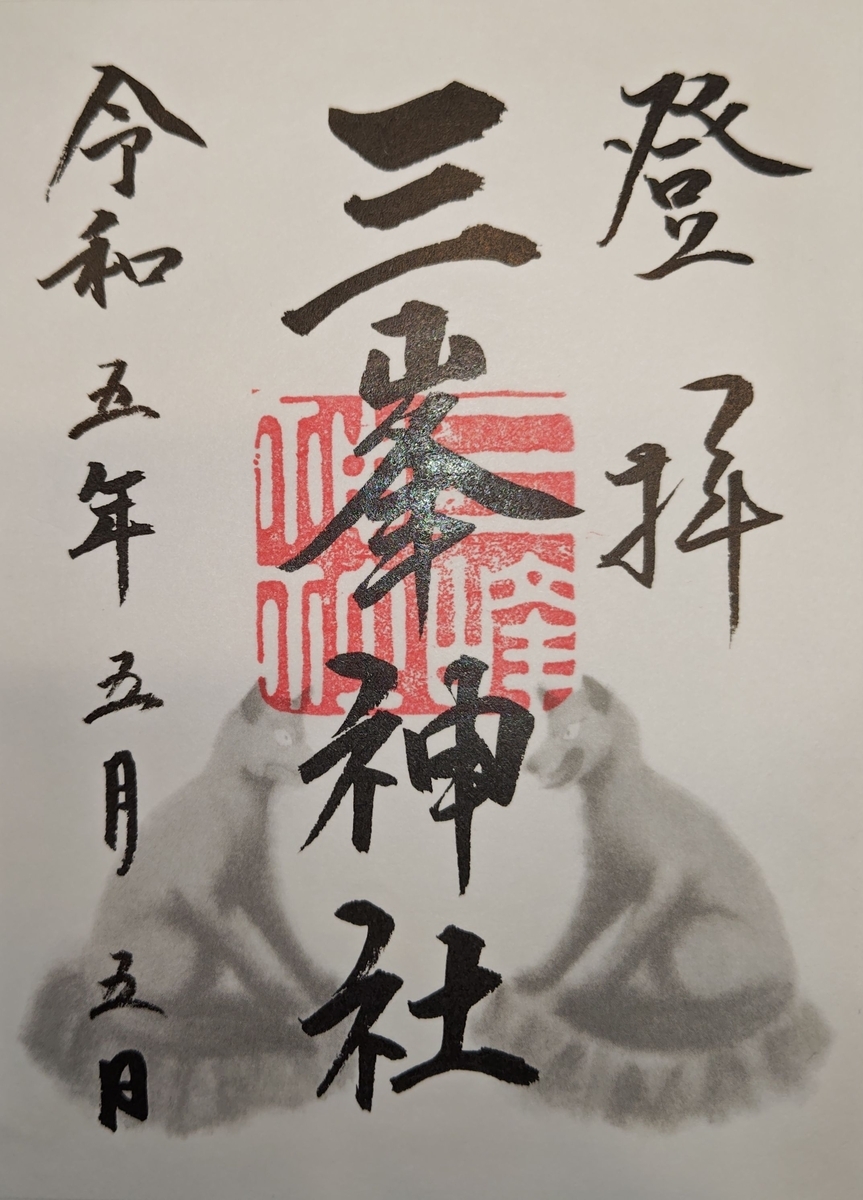 登拝
三峯神社
三峰神社
令和五年五月五日